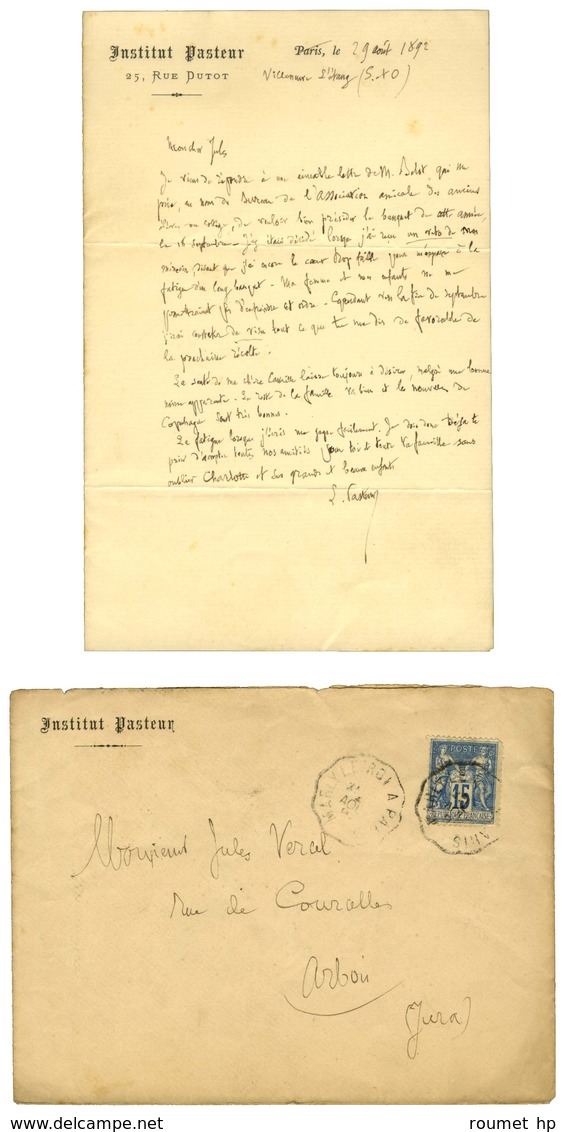 Institut Pasteur
25, RUE DUTOT
Paris, le 29 août 1892
Villeneuve l'Étang (S. & O)
Mon cher Jules
Je viens de répondre à une aimable lettre de M. qui me
prie, au nom du Bureau de l'Association amicale des anciens
élèves du collège, de vouloir bien présider le banquet de cette année,
le 16 septembre. J'y étais décidé lorsque j'ai reçu un veto de mon
médecin, disant que j'ai encore le cœur trop faible pour m'exposer à la
fatigue d'un long banquet. Ma femme et mes enfants ne me
permettraient pas d'enfreindre cet ordre. Cependant vers la fin de septembre
j'irai constater de visu tout ce que tu me dis de favorable de
la prochaine récolte.
La santé de ma chère Camille laisse toujours à désirer, malgré une bonne
apparente. Le reste de la famille va bien et les nouvelles de
Copenhague sont très bonnes.
La fatigue lorsque j'écris me gagne facilement. Je dois donc déjà te
prier d'accepter toutes nos amitiés pour toi et toute ta famille sans
oublier Charlotte et ses grands et beaux enfants
L. Pasteur
Institut Pasteur
MARLY-LE-ROI A PA
POSTE
15
PARIS
Monsieur Jules Vercel
rue de Courcelles
Arbois
(Jura)
roumet hp